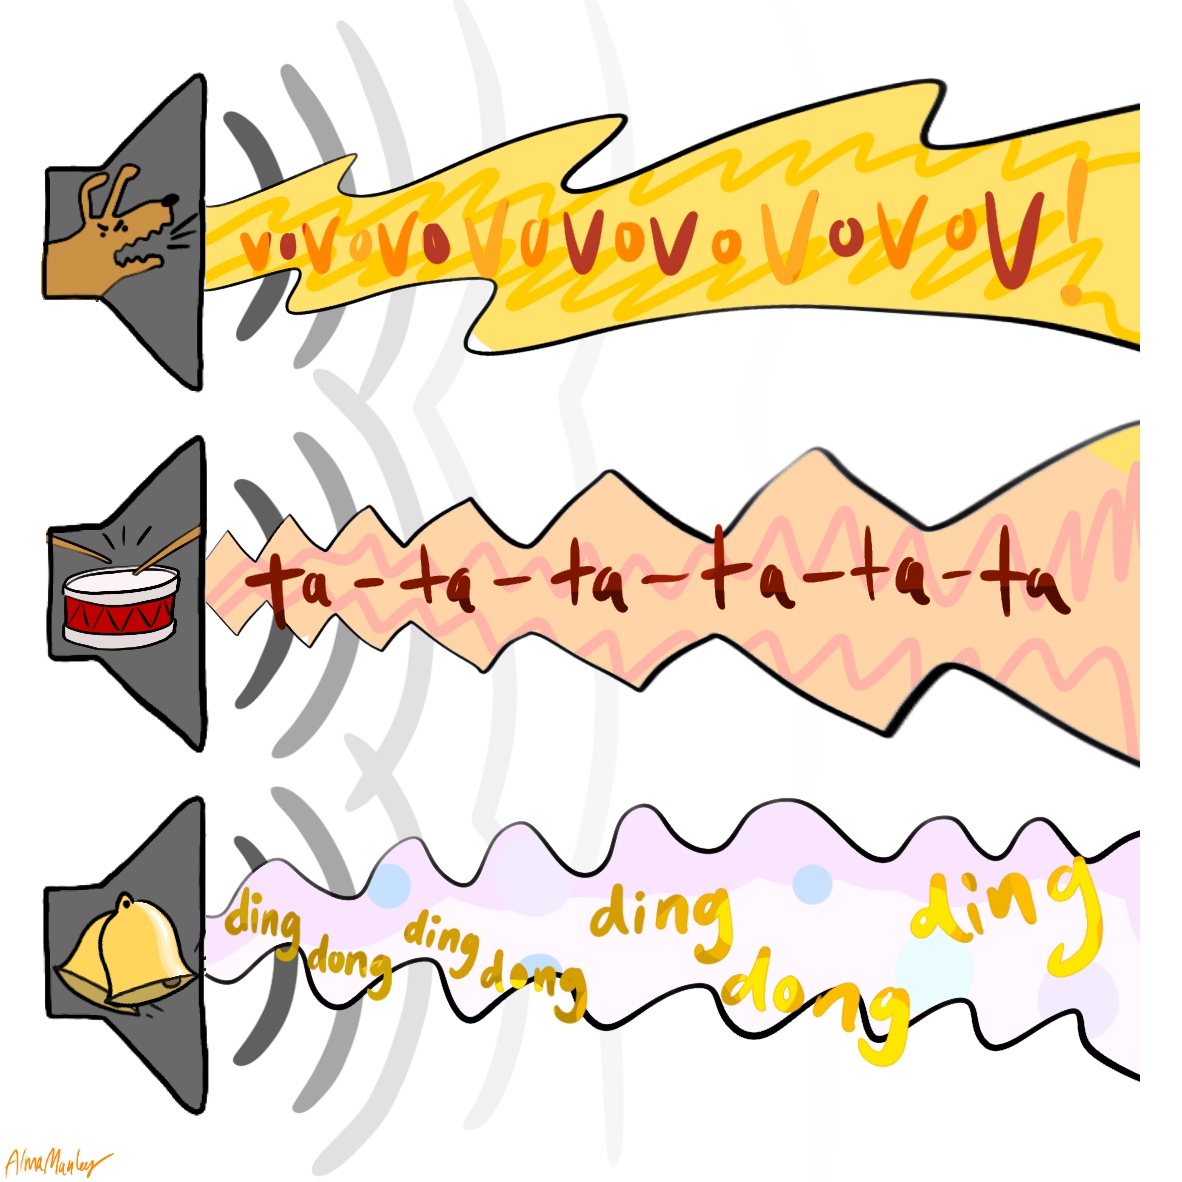 vovovovovovovovov!
ta-ta-ta-ta-ta-ta
ding dong ding dong ding dong ding
AlmaManley